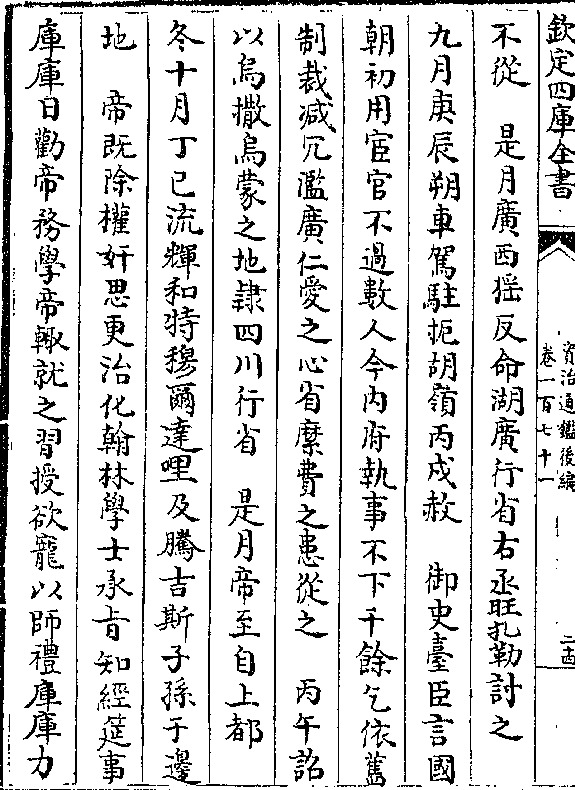 欽定四庫全書
資治通鑑後編
卷一百七十一
二十四
不從　是月廣西猺反命湖廣行省右丞旺扎勒討之
九月庚辰朔車駕駐扼胡嶺丙戌赦　御史臺臣言國
朝初用宦官不過數人今内府執事不下千餘乞依舊
制裁減冗濫廣仁愛之心省縻費之患從之　丙午詔
以烏撒烏蒙之地隷四川行省　是月帝至自上都
冬十月丁巳流輝和特穆爾達哩及騰吉斯子孫于邊
地　帝既除權奸思更治化翰林學士承旨知經筵事
庫庫日勸帝務學帝輙就之習授欲寵以師禮庫庫力